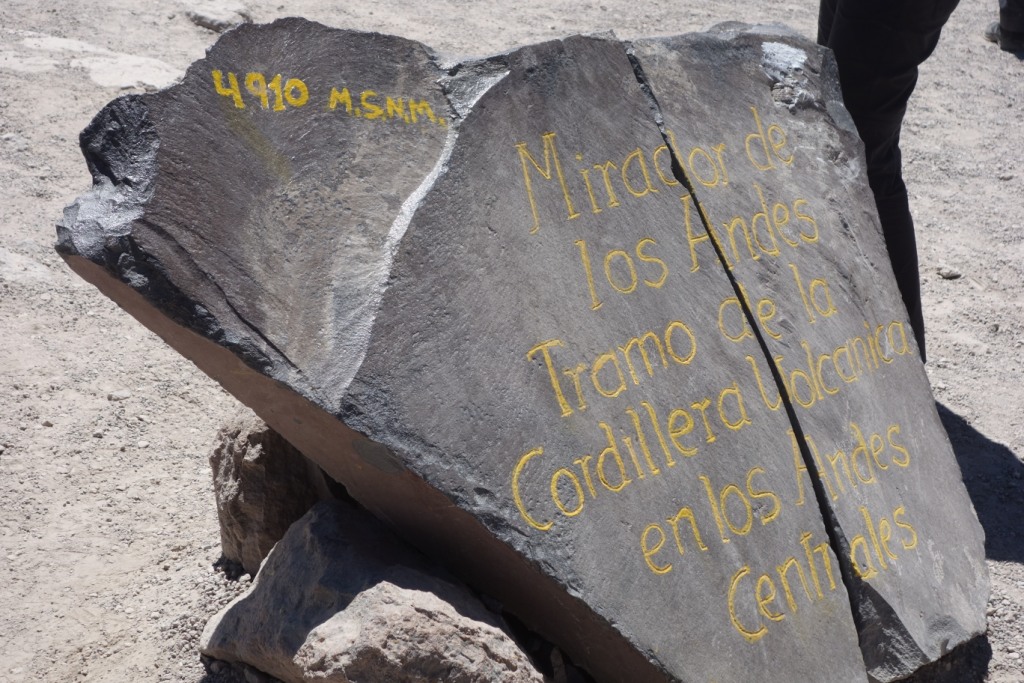 4910 M.S.N.M.
Mirador de
los Andes
Tramo de la
Cordillera Volcanica
en los Andes
Centrales